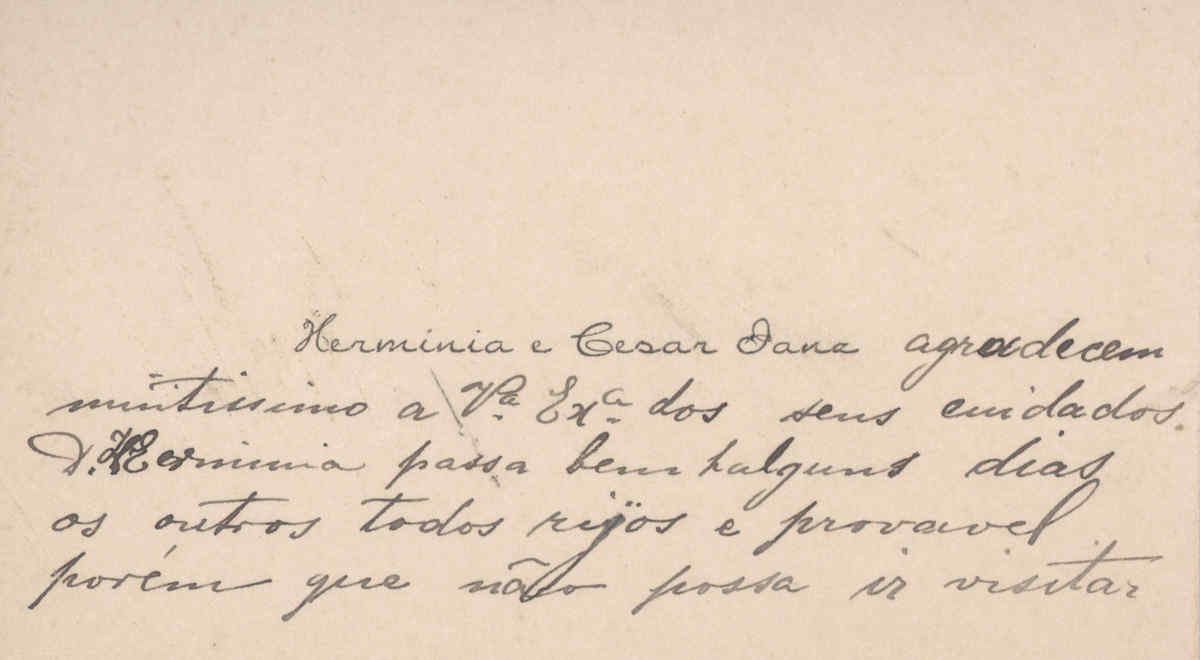 Herminia e Cesar Dana agradecem
muitissimo a Vª Exª dos seus cuidados.
D. Herminia passa bem halguns dias
os outros todos rijos e provavel
porém que não possa ir visitar